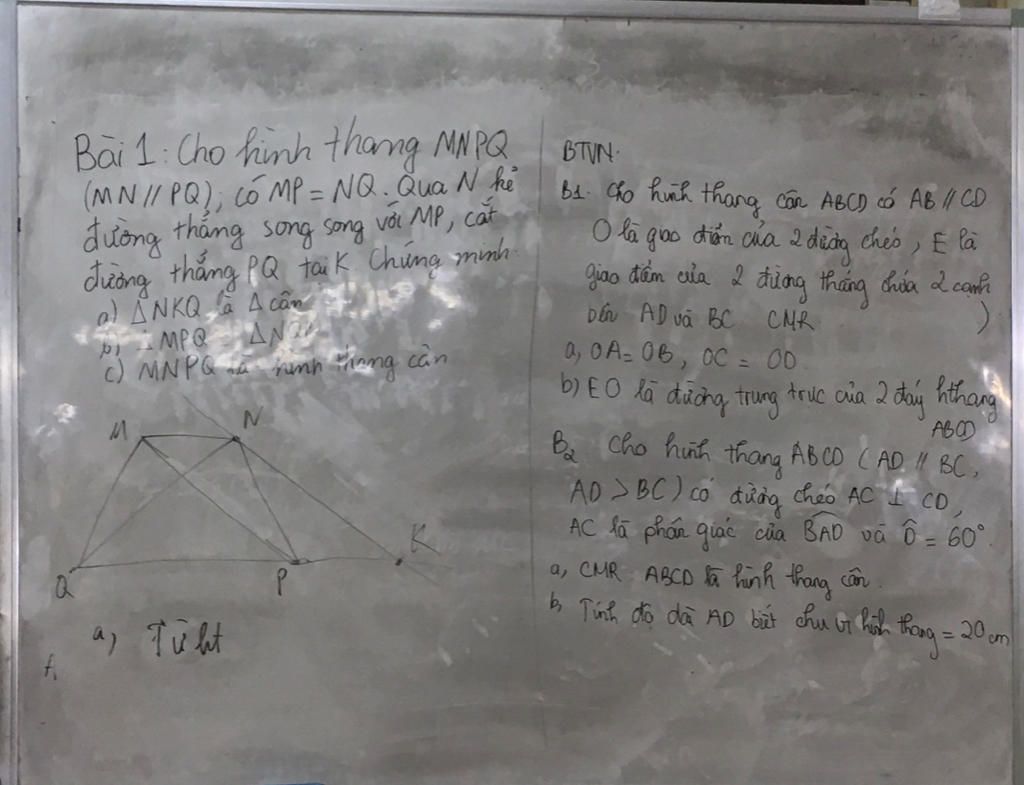 Bài 1: Cho hình thang MNPQ
(MN // PQ), có MP = NQ. Qua N kẻ
đường thẳng song song với MP, cắt
đường thẳng PQ tại K. Chứng minh.
a) △NKQ là △ cân
b) △MPQ = △N
c) MNPQ là hình thang cân
M
N
Q
P
K
a, Từ
BTVN.
B1. Cho hình thang cân ABCD có AB // CD
O là giao điểm của 2 đường chéo, E là
giao điểm của 2 đường thẳng chứa 2 cạnh
bên AD và BC CMR
a, OA = OB, OC = OD
b) EO là đường trung trực của 2 đáy hthang
ABCD
B2 Cho hình thang ABCD (AD // BC,
AD > BC) có đường chéo AC ⊥ CD,
AC là phân giác của B̂AD và D̂ = 60°.
a, CMR ABCD là hình thang cân.
b, Tính độ dài AD biết chu vi hình thang = 20 cm